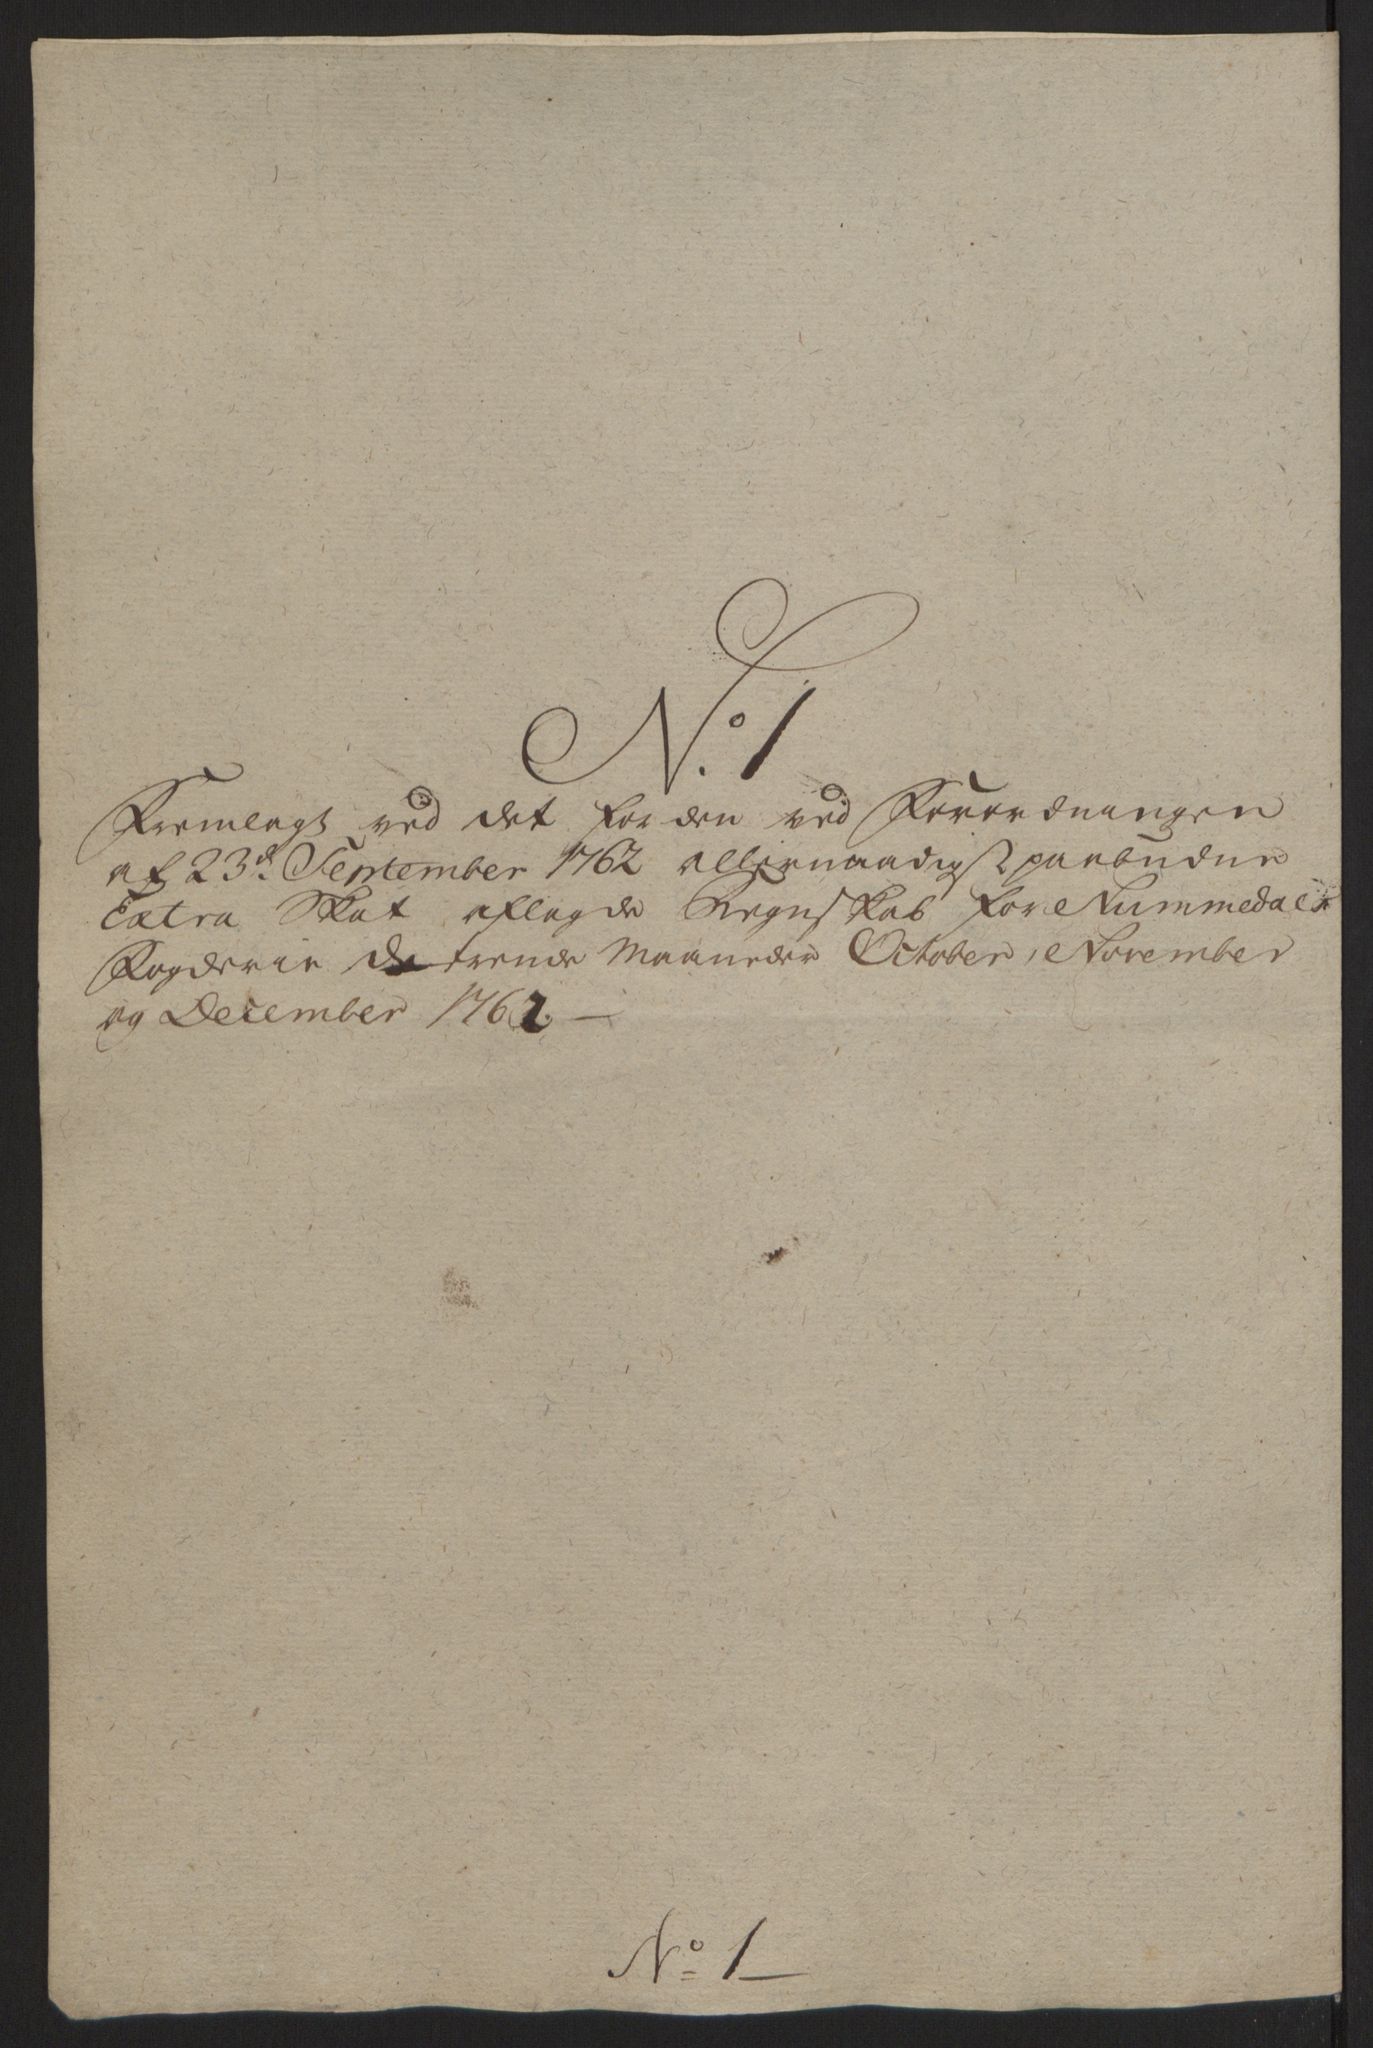 No. 1
Fremlagt ved det for den ved Forordningen
af 23d. September 1762 allernaadigst paabudne
Extra Skat aflagde Regnskab for Nummedals
Fogderie de trende Maaneder October, November
og December 1762. —
No. 1